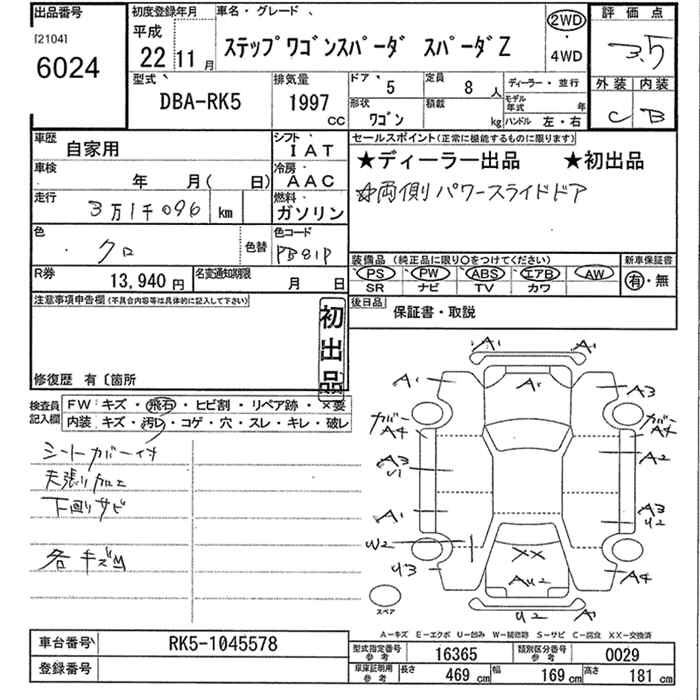 出品番号
[2104]
6024
初度登録年月
平成
22 11月
車名・グレード
ステップワゴンスパーダ スパーダZ
2WD
・
4WD
評価点
3.5
外装 内装
C B
型式
DBA-RK5
排気量
1997
CC
ドア 5
定員 8 人
形状 ワゴン
積載 kg
ディーラー・並行
モデル年式 年
ハンドル 左・右
車歴 自家用
シフト IAT
車検 年 月( 日)
冷房 AAC
走行 3万1千096 km
燃料 ガソリン
色 クロ
色替
色コード PB81P
R券 13,940 円
名変通知期限 月 日
セールスポイント(正常に機能するものに限ります)
★ディーラー出品 ★初出品
☆両側パワースライドドア
装備品 (純正品に限り○をつけてください)
PS PW ABS エアB AW
SR ナビ TV カワ
新車保証書
有・無
後日品
保証書・取説
注意事項申告欄(不具合内容等は具体的に記入して下さい)
初出品
修復歴 有〔箇所
検査員記入欄
FW: キズ・飛石・ヒビ割・リペア跡・×要
内装: キズ・汚レ・コゲ・穴・スレ・キレ・破レ
シートカバー付
天張り加工
下回りサビ
各キズ
A1 A1
A1 A1 A3
カバー A4
カバー A4
A3 U1
A2
A1
A3 U2
W2
XX
U3
AU2
A4
スペア
U2 A1
A-キズ E-エクボ U-凹み W-補修跡 S-サビ C-腐食 XX-交換済
車台番号 RK5-1045578
登録番号
型式指定番号参考 16365
類別区分番号参考 0029
車庫証明用参考 長さ 469 cm 幅 169 cm 高さ 181 cm